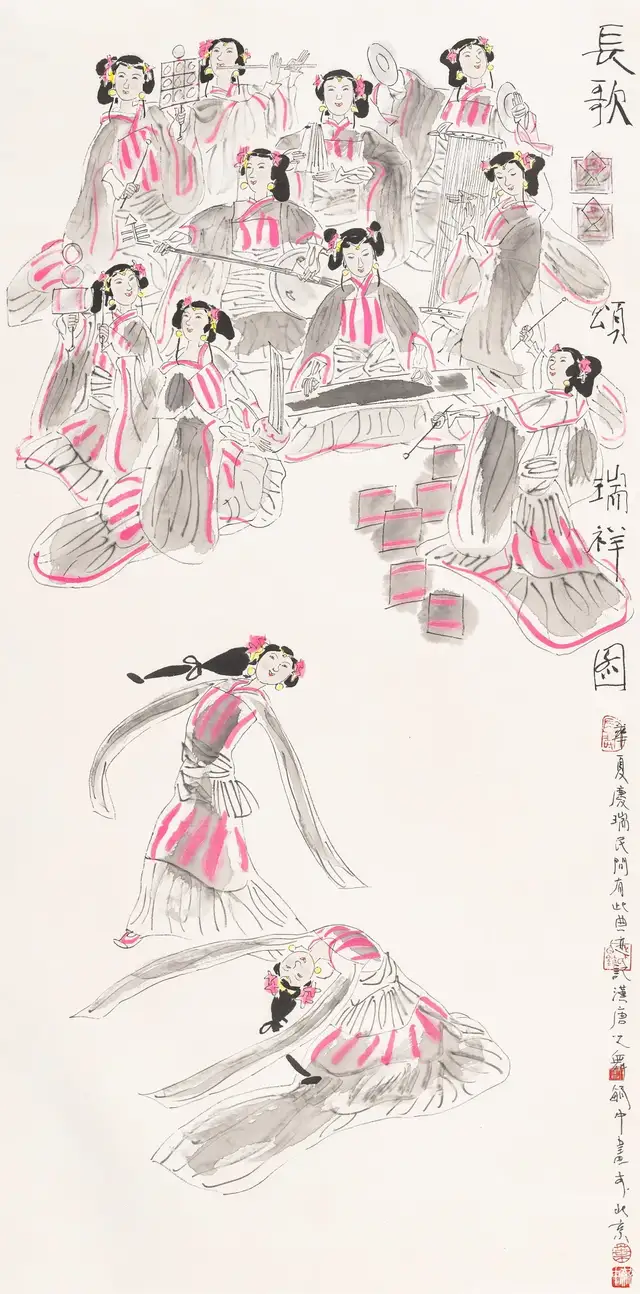 長歌頌瑞祥图
華夏慶瑞民間有此曲亦記漢唐之舞毓中畫於北京